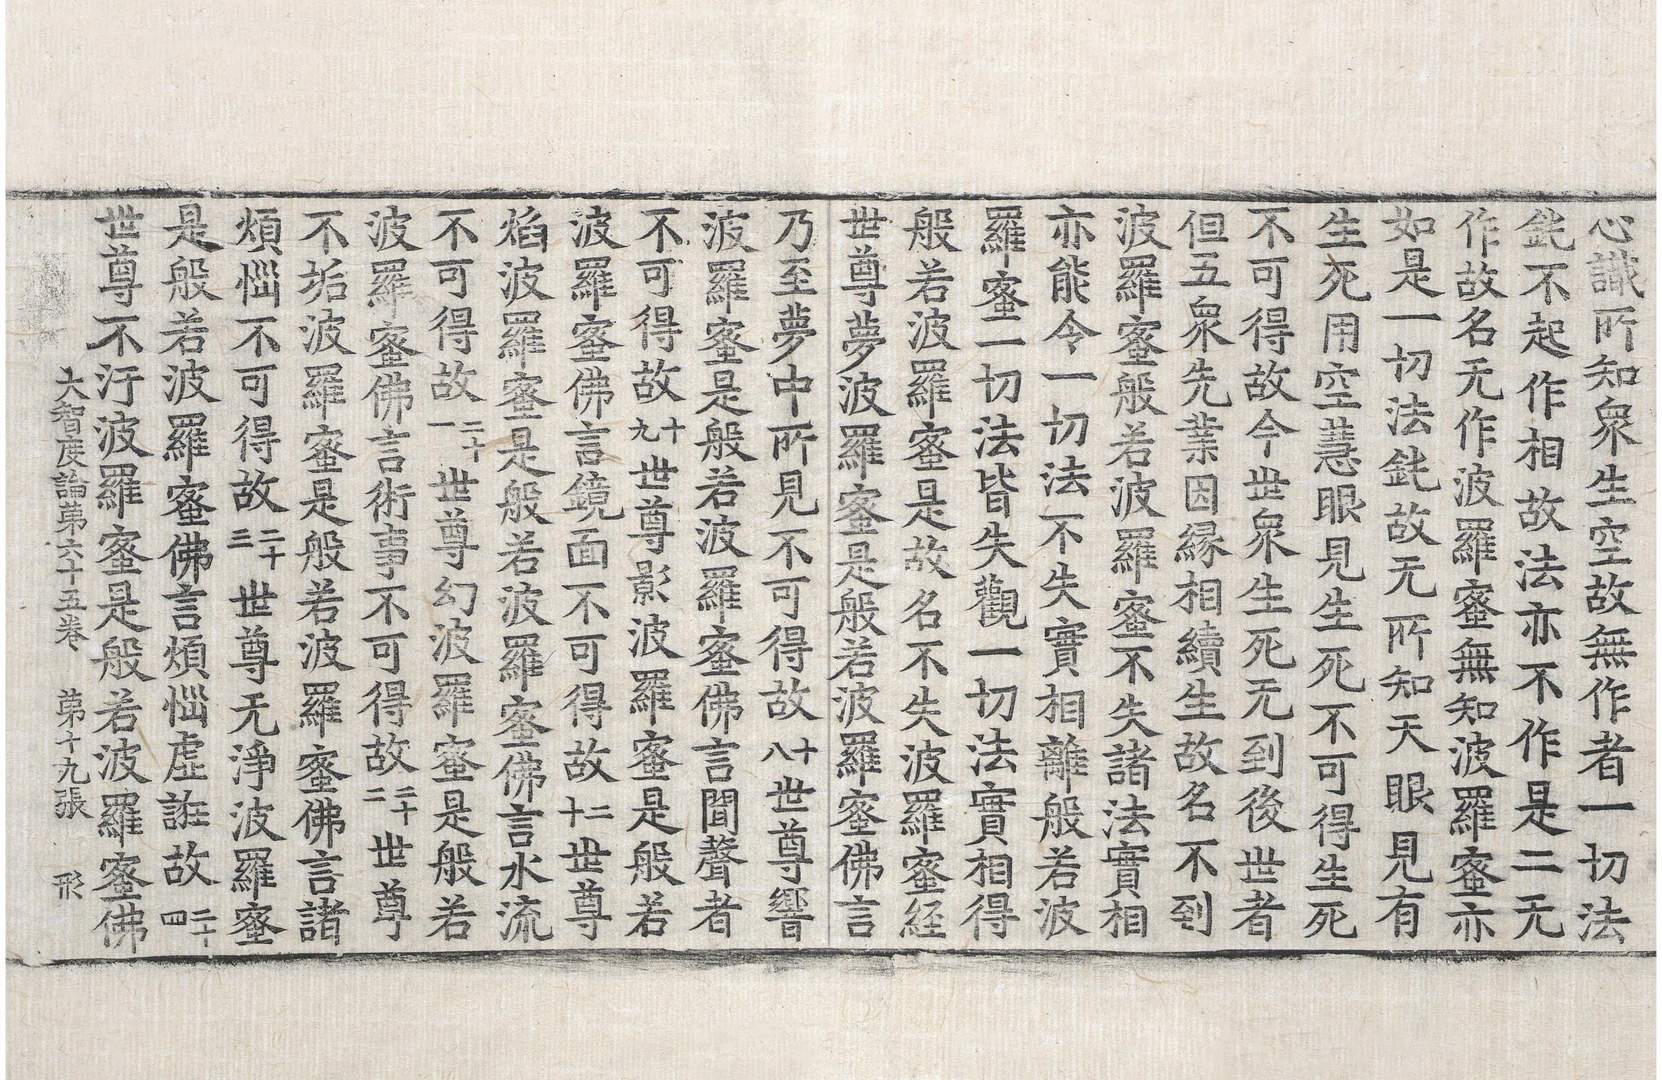 心識所知衆生空故無作者一切法
鈍不起作相故法亦不作是二无
作故名无作波羅蜜無知波羅蜜亦
如是一切法鈍故无所知天眼見有
生死用空慧眼見生死不可得生死
不可得故今世衆生死无到後世者
但五衆先業因緣相續生故名不到
波羅蜜般若波羅蜜不失諸法實相
亦能令一切法不失實相離般若波
羅蜜一切法皆失觀一切法實相得
般若波羅蜜是故名不失波羅蜜経
世尊夢波羅蜜是般若波羅蜜佛言
乃至夢中所見不可得故十八世尊響
波羅蜜是般若波羅蜜佛言聞聲者
不可得故十九世尊影波羅蜜是般若
波羅蜜佛言鏡面不可得故二十世尊
焰波羅蜜是般若波羅蜜佛言水流
不可得故二十一世尊幻波羅蜜是般若
波羅蜜佛言術事不可得故二十二世尊
不垢波羅蜜是般若波羅蜜佛言諸
煩惱不可得故二十三世尊无淨波羅蜜
是般若波羅蜜佛言煩惱虛誑故二十四
世尊不汙波羅蜜是般若波羅蜜佛
大智度論第六十五卷 第十九張 形